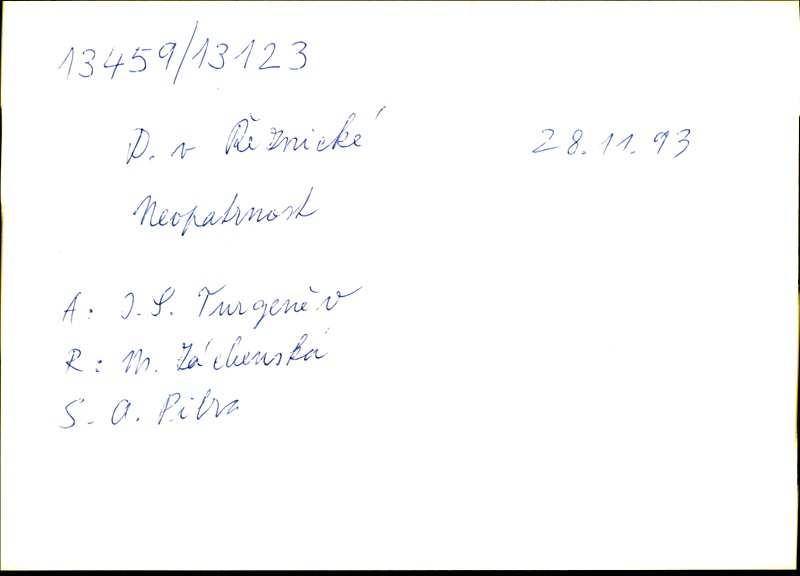 13459/13123
D. v Řeznické 28.11.93
Neopatrnost
A: I. S. Turgeněv
R: M. Záchenská
S. A. Pitra